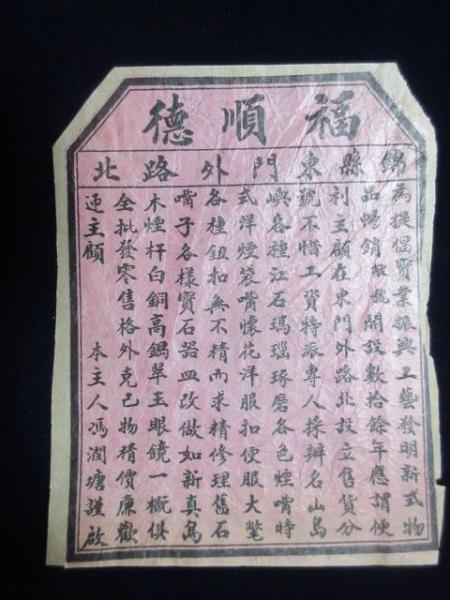 福順德
錦縣東門外路北
為提倡實業振興工藝發明新式物
品暢銷敝號開設數拾餘年應謂便
利主顧在東門外路北設立售貨分
號不惜工資特派專人採辦名山島
嶼各種江石瑪瑙琢磨各色煙嘴時
式洋煙袋嘴懷花洋服扣便服大氅
各種鈕扣無不精而求精修理舊石
嘴子各樣寶石器皿改做如新真烏
木煙杆白銅高翠玉眼鏡一概俱
全批發零售格外克己物精價廉歡
迎主顧 本主人馮潤塘謹啟